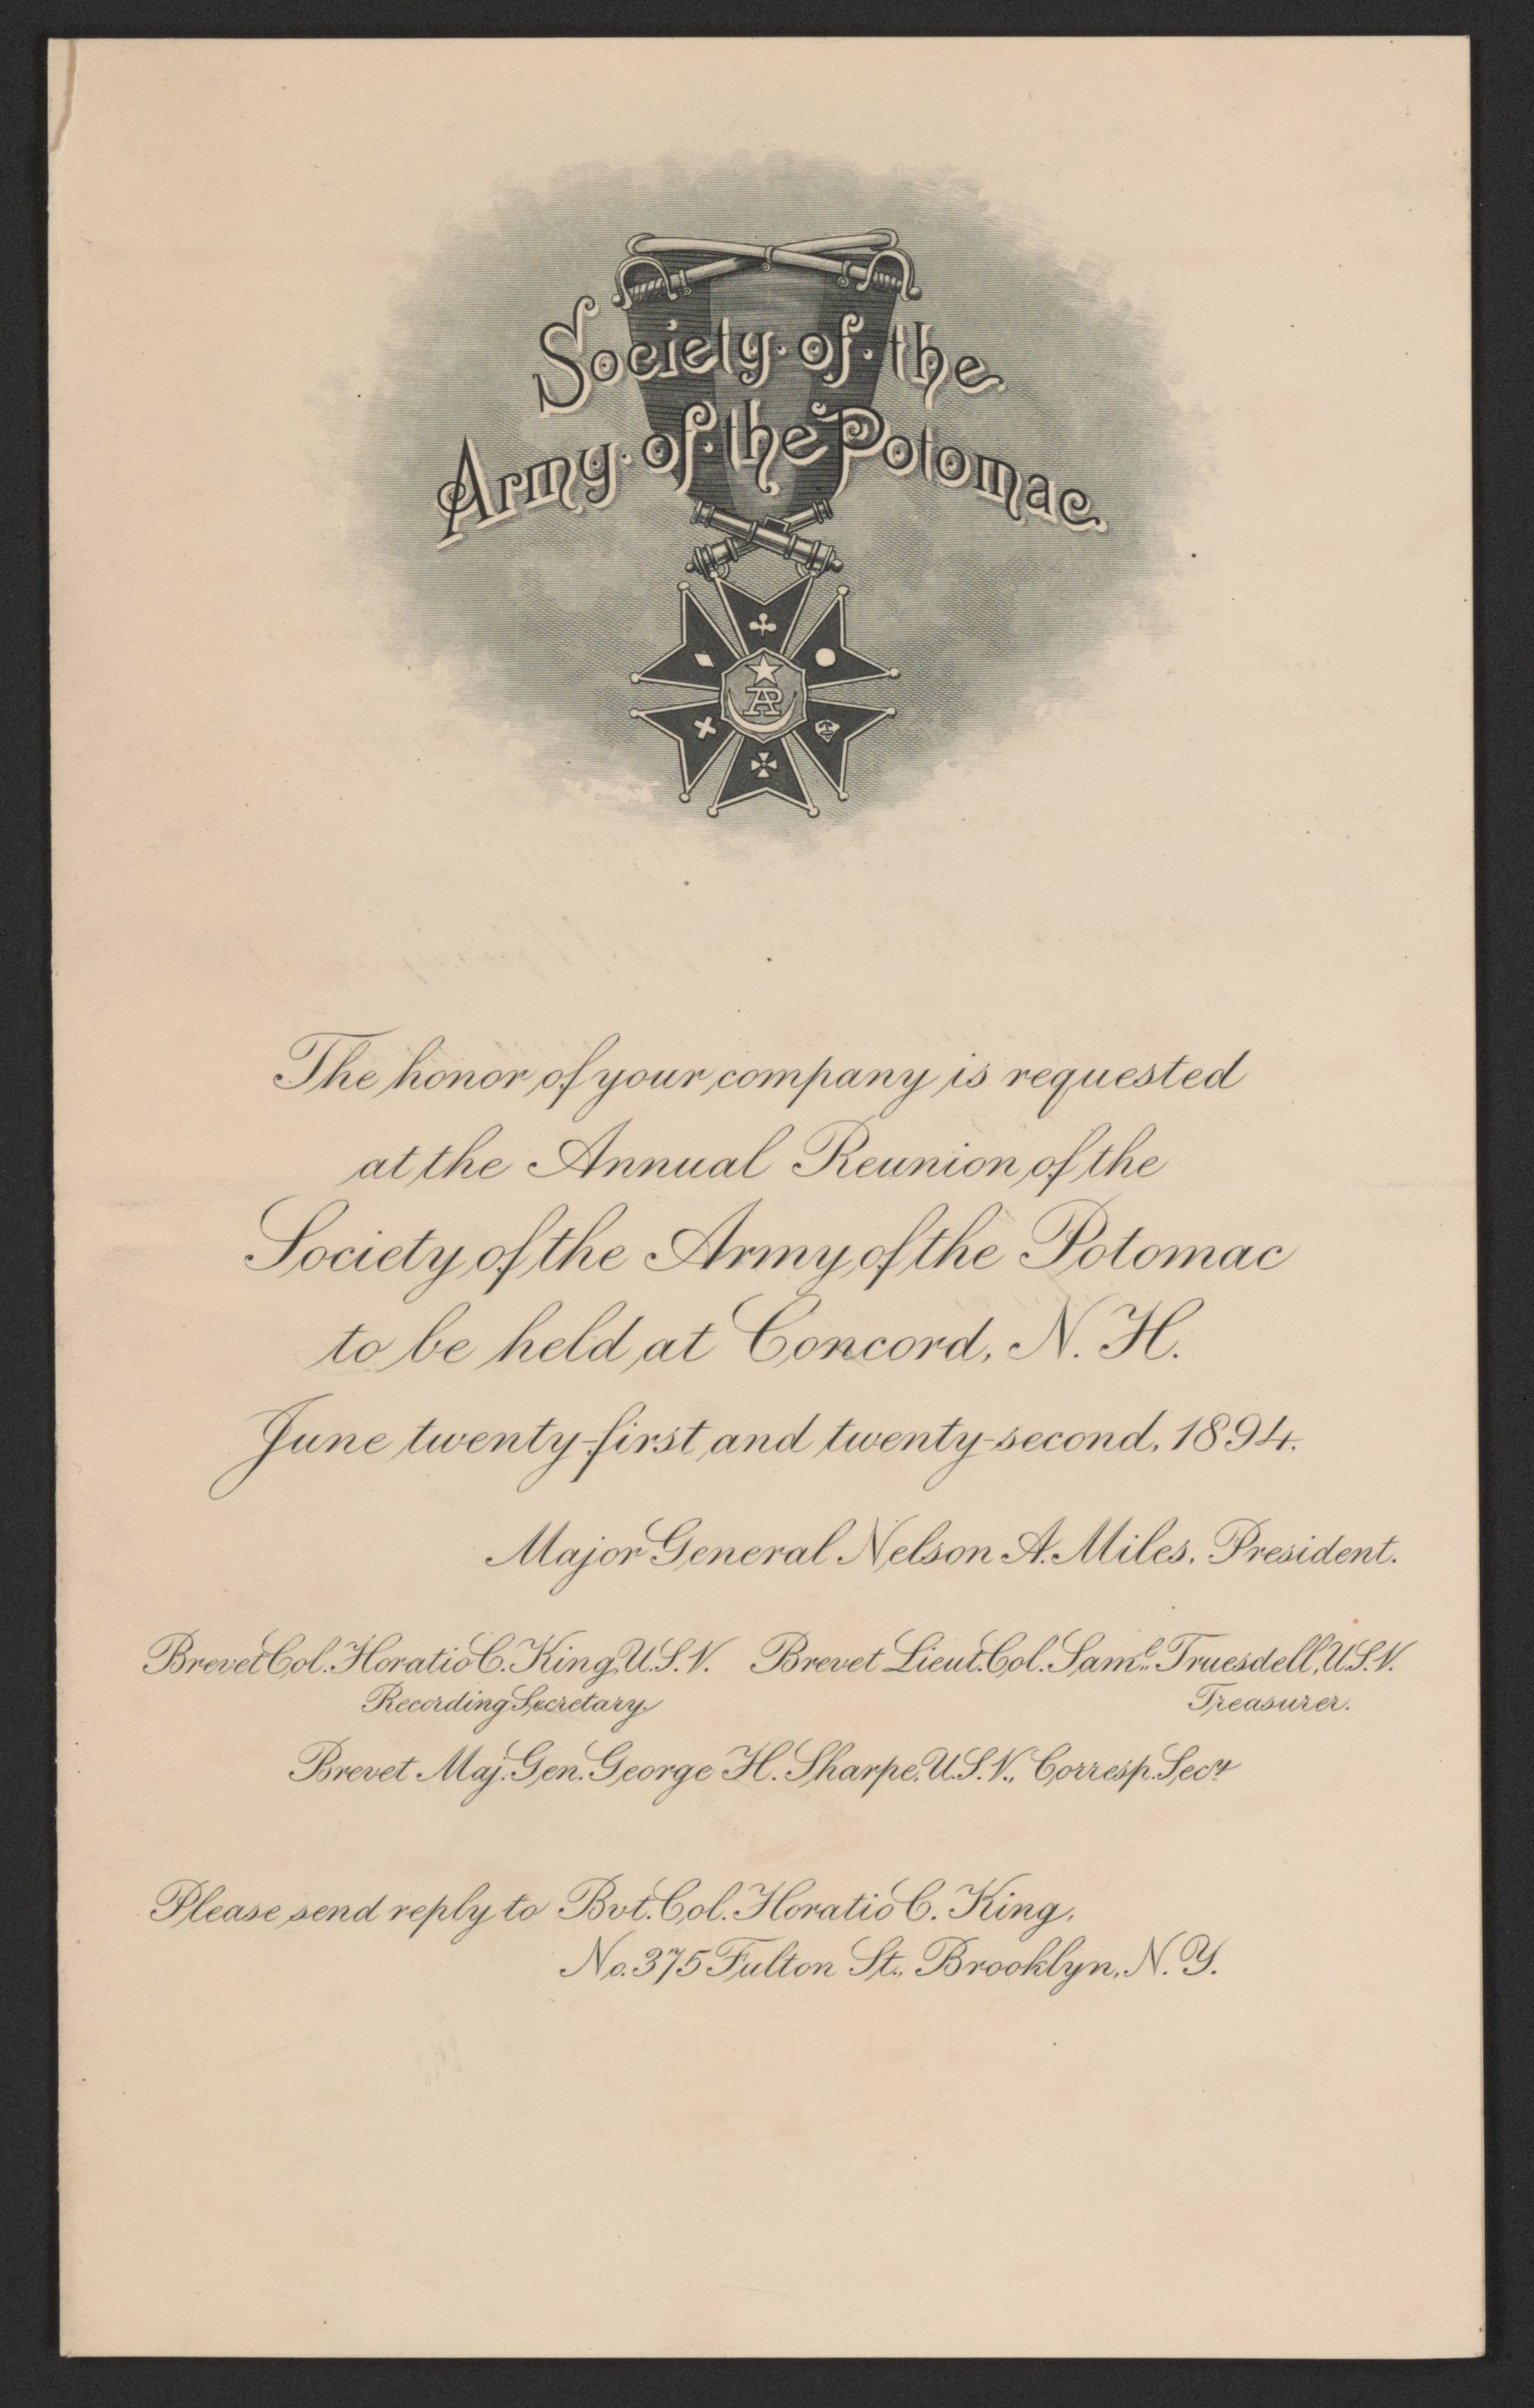 Society of the
Army of the Potomac
AP
The honor of your company is requested
at the Annual Reunion of the
Society of the Army of the Potomac
to be held at Concord, N. H.
June twenty-first and twenty-second, 1894.
Major General Nelson A. Miles, President.
Brevet Col. Horatio C. King, U.S.V. Brevet Lieut. Col. Saml. Truesdell, U.S.V.
Recording Secretary. Treasurer.
Brevet Maj. Gen. George H. Sharpe, U.S.V., Corresp. Secy.
Please send reply to Bvt. Col. Horatio C. King,
No. 375 Fulton St., Brooklyn, N. Y.